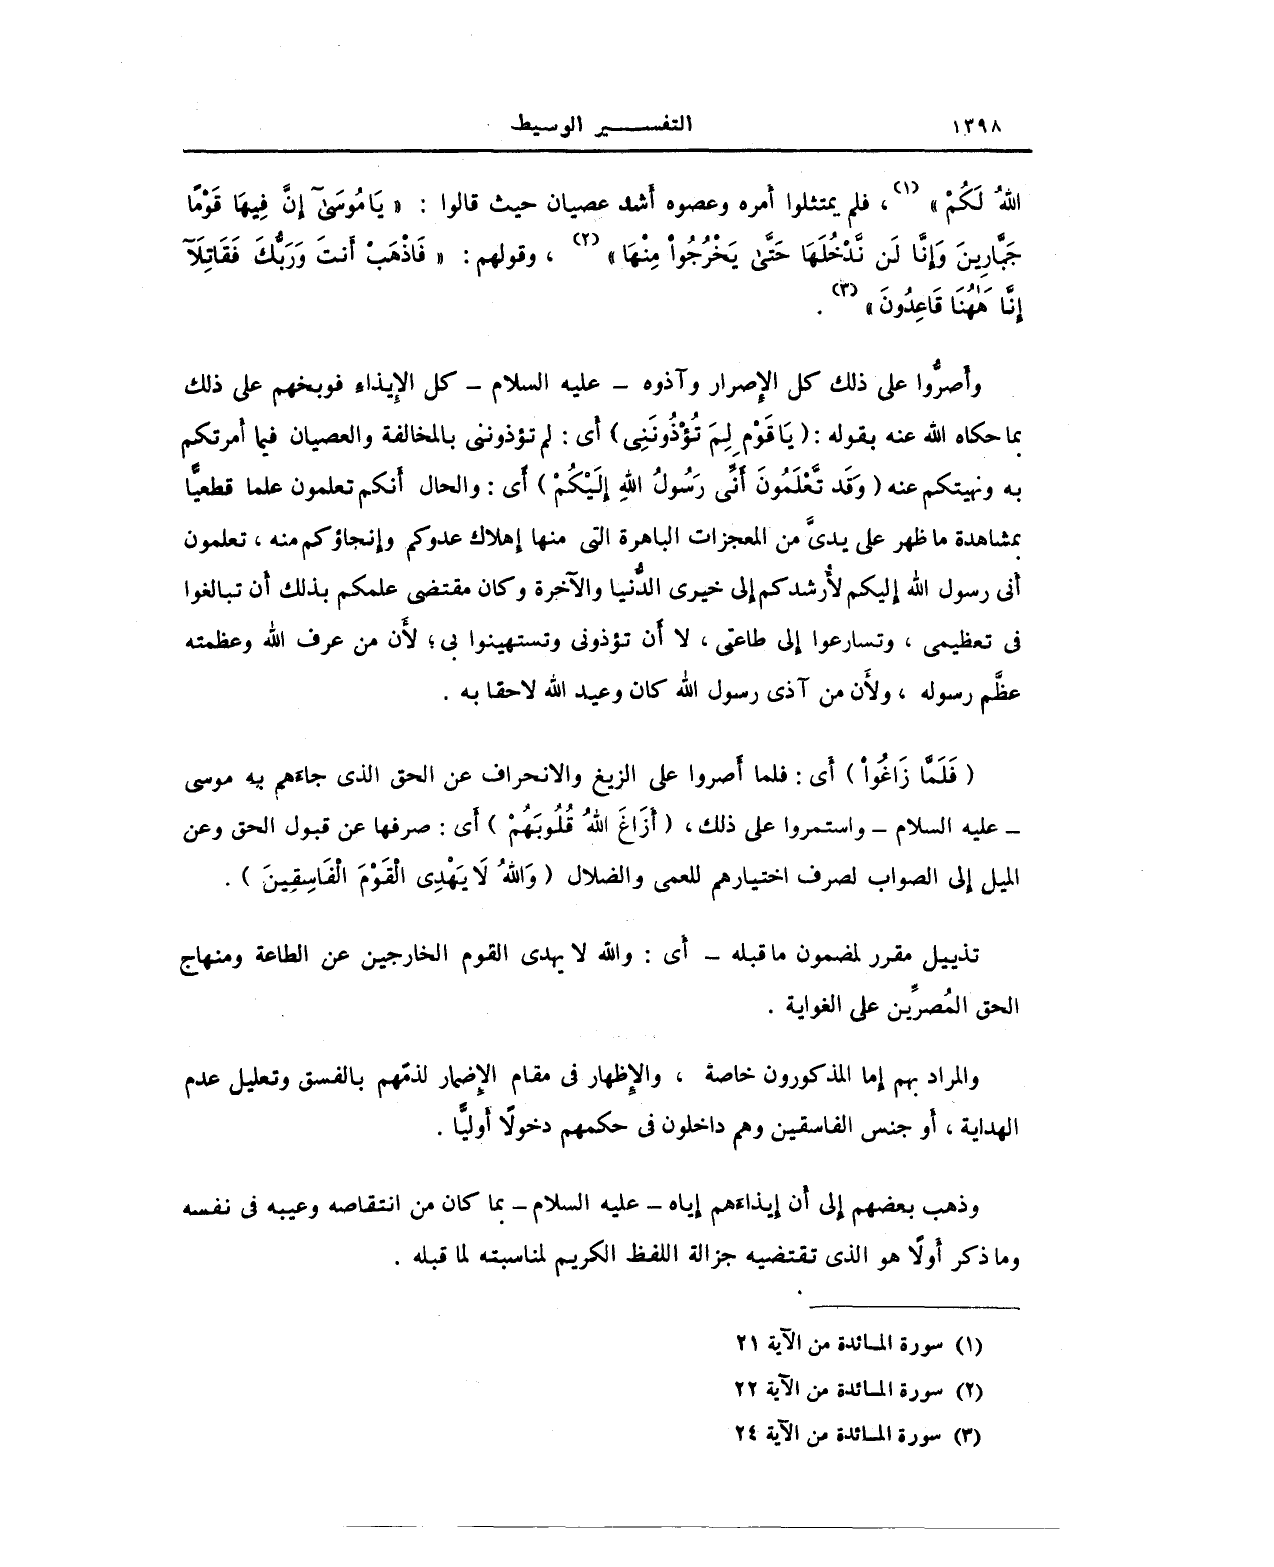 ١٣٩٨
التفسـير الوسيط
اللهُ لَكُمْ » (١) ، فلم يمتثلوا أمره وعصوه أشد عصيان حيث قالوا : « يَامُوسَىٰٓ إِنَّ فِيهَا قَوْمًا
جَبَّارِينَ وَإِنَّا لَن نَّدْخُلَهَا حَتَّىٰ يَخْرُجُواْ مِنْهَا » (٢) ، وقولهم : « فَاذْهَبْ أَنتَ وَرَبُّكَ فَقَاتِلَآ
إِنَّا هَٰهُنَا قَاعِدُونَ » (٣) .
وأصرُّوا على ذلك كل الإِصرار وآذوه – عليه السلام – كل الإِيذاء فوبخهم على ذلك
بما حكاه الله عنه بقوله : ( يَاقَوْمِ لِمَ تُؤْذُونَنِى ) أى : لم تؤذوننى بالمخالفة والعصيان فيما أمرتكم
به ونهيتكم عنه ( وَقَد تَّعْلَمُونَ أَنِّى رَسُولُ اللهِ إِلَيْكُمْ ) أى : والحال أنكم تعلمون علما قطعيًّا
بمشاهدة ما ظهر على يدىَّ من المعجزات الباهرة التى منها إهلاك عدوكم وإنجاؤكم منه ، تعلمون
أنى رسول الله إليكم لأُرشدكم إلى خيرى الدُّنيا والآخرة وكان مقتضى علمكم بذلك أن تبالغوا
فى تعظيمى ، وتسارعوا إلى طاعتى ، لا أن تؤذونى وتستهينوا بى ؛ لأَن من عرف الله وعظمته
عظَّم رسوله ، ولأَن من آذى رسول الله كان وعيد الله لاحقا به .
( فَلَمَّا زَاغُواْ ) أى : فلما أصروا على الزيغ والانحراف عن الحق الذى جاءهم به موسى
– عليه السلام – واستمروا على ذلك ، ( أَزَاغَ اللهُ قُلُوبَهُمْ ) أى : صرفها عن قبول الحق وعن
الميل إلى الصواب لصرف اختيارهم للعمى والضلال ( وَاللهُ لَا يَهْدِى الْقَوْمَ الْفَاسِقِينَ ) .
تذييل مقرر لمضمون ما قبله – أى : والله لا يهدى القوم الخارجين عن الطاعة ومنهاج
الحق المُصرِّين على الغواية .
والمراد بهم إما المذكورون خاصة ، والإِظهار فى مقام الإِضمار لذمّهم بالفسق وتعليل عدم
الهداية ، أو جنس الفاسقين وهم داخلون فى حكمهم دخولًا أوليًّا .
وذهب بعضهم إلى أن إيذاءهم إياه – عليه السلام – بما كان من انتقاصه وعيبه فى نفسه
وما ذكر أولًا هو الذى تقتضيه جزالة اللفظ الكريم لمناسبته لما قبله .
(١) سورة المائدة من الآية ٢١
(٢) سورة المائدة من الآية ٢٢
(٣) سورة المائدة من الآية ٢٤